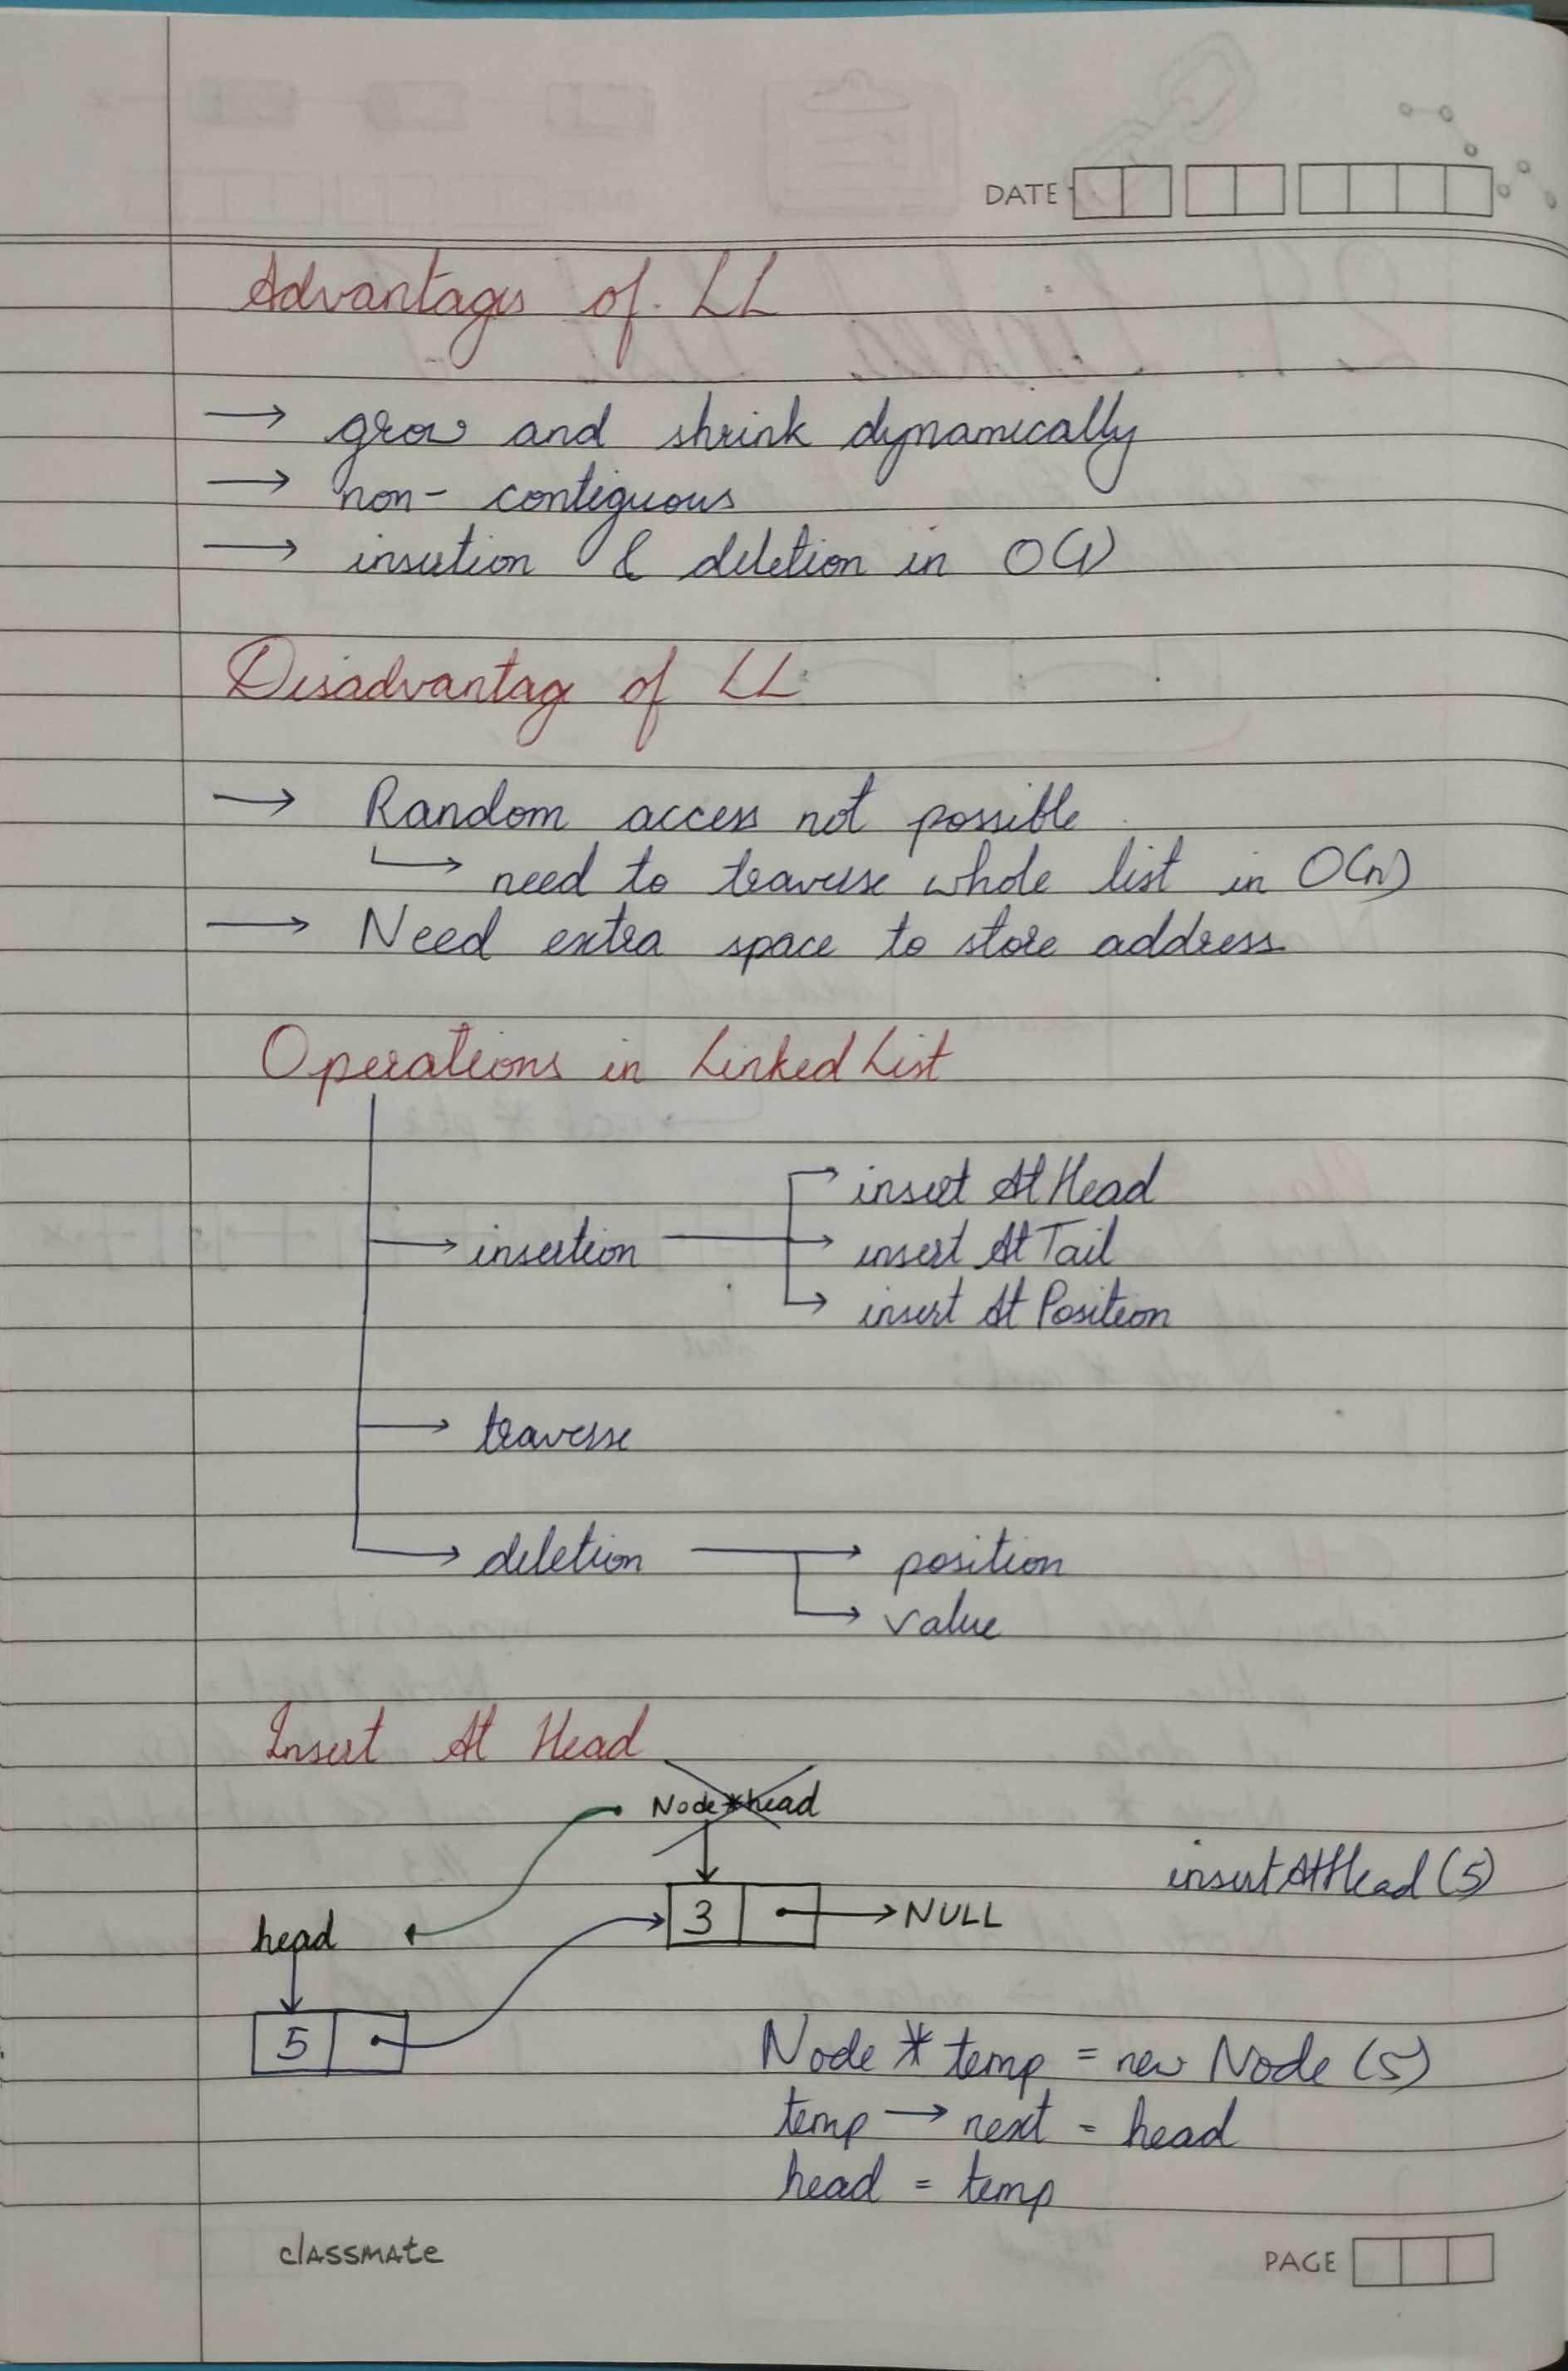 DATE
Advantages of LL
→ grow and shrink dynamically
→ non- contiguous
→ insertion & deletion in O(1)
Disadvantage of LL
→ Random access not possible
↳ need to traverse whole list in O(n)
→ Need extra space to store address
Operations in Linked List
→ insertion → insert At Head
→ insert At Tail
→ insert At Position
→ traverse
→ deletion → position
→ value
Insert At Head
Node * head
insertAtHead (5)
3 → NULL
head
5
Node * temp = new Node (5)
temp → next = head
head = temp
classmate
PAGE